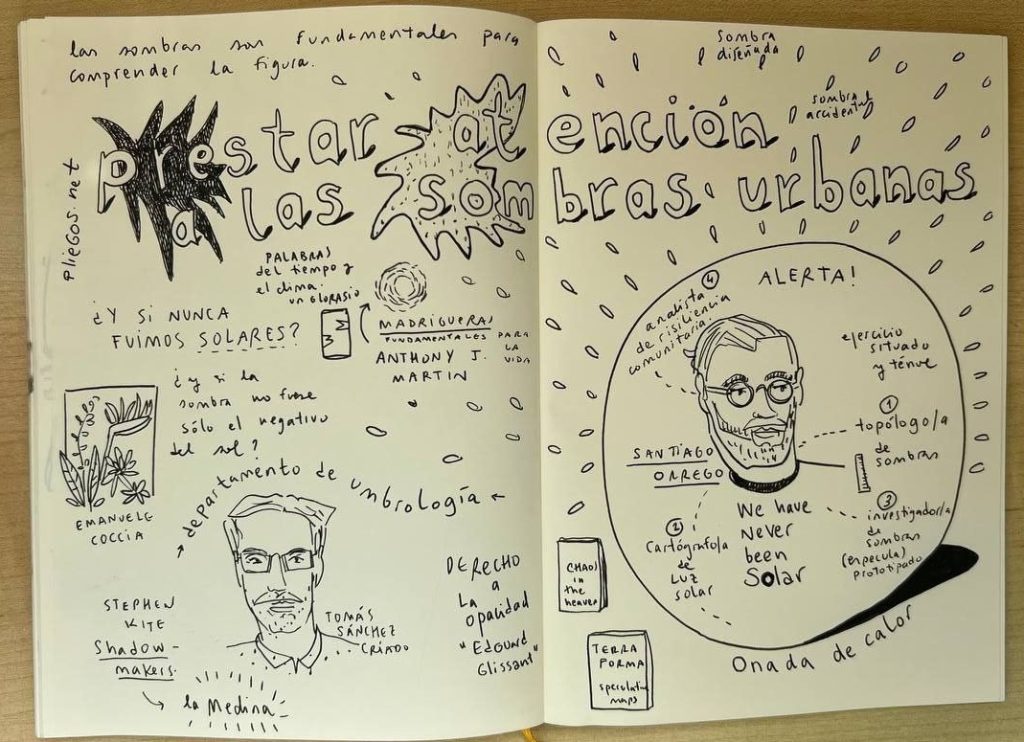 las sombras son fundamentales para
comprender la figura.
pliegos.net
prestar atención
a las sombras urbanas
sombra
diseñada
sombra
accidental
PALABRAS
del tiempo y
el clima.
un GLORASIO
¿Y SI NUNCA
FUIMOS SOLARES?
MADRIGUERAS
FUNDAMENTALES PARA
LA
VIDA
ANTHONY J.
MARTIN
¿y si la
sombra no fuese
sólo el negativo
del sol?
EMANUELE
COCCIA
departamento de umbrología
STEPHEN
KITE
Shadow-
makers.
la Medina
TOMÁS
SÁNCHEZ
CRIADO
DERECHO
a
La
opacidad
"Edouard
Glissant"
ALERTA!
4
analista
de risiliencia
comunitaria.
ejercicio
situado
y ténue
1
topólogo/a
de
sombras
SANTIAGO
ORREGO
We have
Never
been
Solar
2
Cartógrafo/a
de
LUZ
solar
3
investigador/a
de
sombras
(especula)
prototipado
CHAOS
in
the
heaven
TERRA
FORMA
speculative
maps
Onada de calor